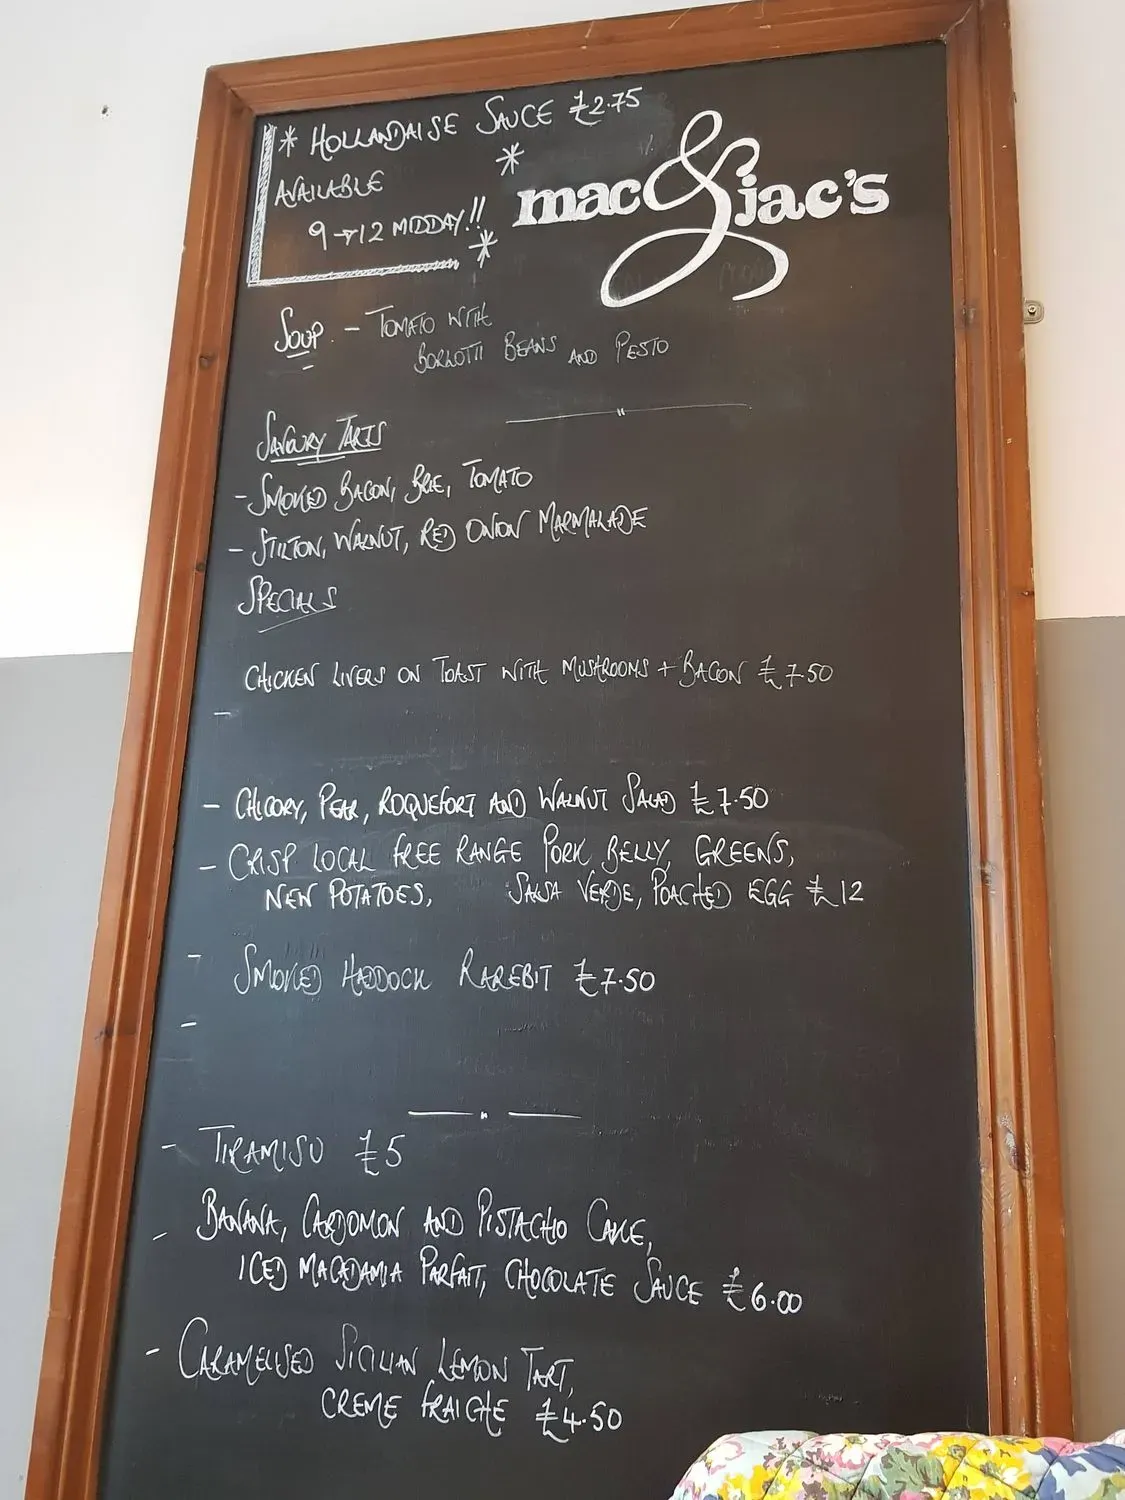 * HOLLANDAISE SAUCE £2.75 *
AVAILABLE
9 → 12 MIDDAY!! *
mac & jac's
SOUP - TOMATO WITH
BORLOTTI BEANS AND PESTO
SAVOURY TARTS
- SMOKED BACON, BRIE, TOMATO
- STILTON, WALNUT, RED ONION MARMALADE
SPECIALS
CHICKEN LIVERS ON TOAST WITH MUSHROOMS + BACON £7.50
-
- CHICORY, PEAR, ROQUEFORT AND WALNUT SALAD £7.50
- CRISP LOCAL FREE RANGE PORK BELLY, GREENS,
NEW POTATOES, SALSA VERDE, POACHED EGG £12
- SMOKED HADDOCK RAREBIT £7.50
-
- TIRAMISU £5
- BANANA, CARDOMON AND PISTACHIO CAKE,
ICED MACADAMIA PARFAIT, CHOCOLATE SAUCE £6.00
- CARAMELISED SICILIAN LEMON TART,
CREME FRAICHE £4.50